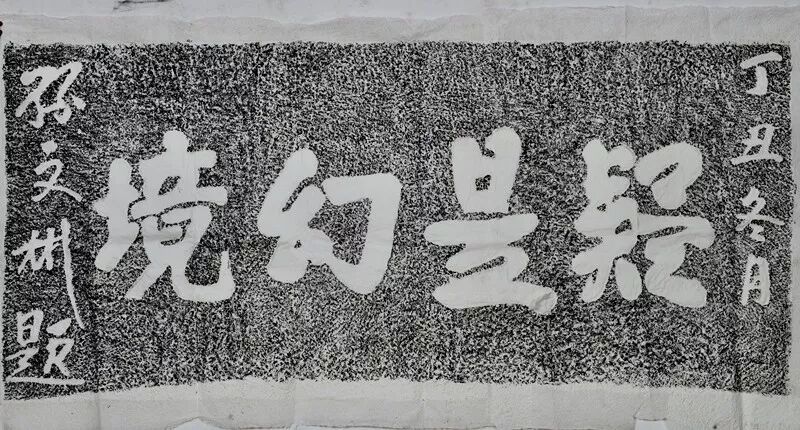 丁丑冬月
疑是幻境
孙文彬题